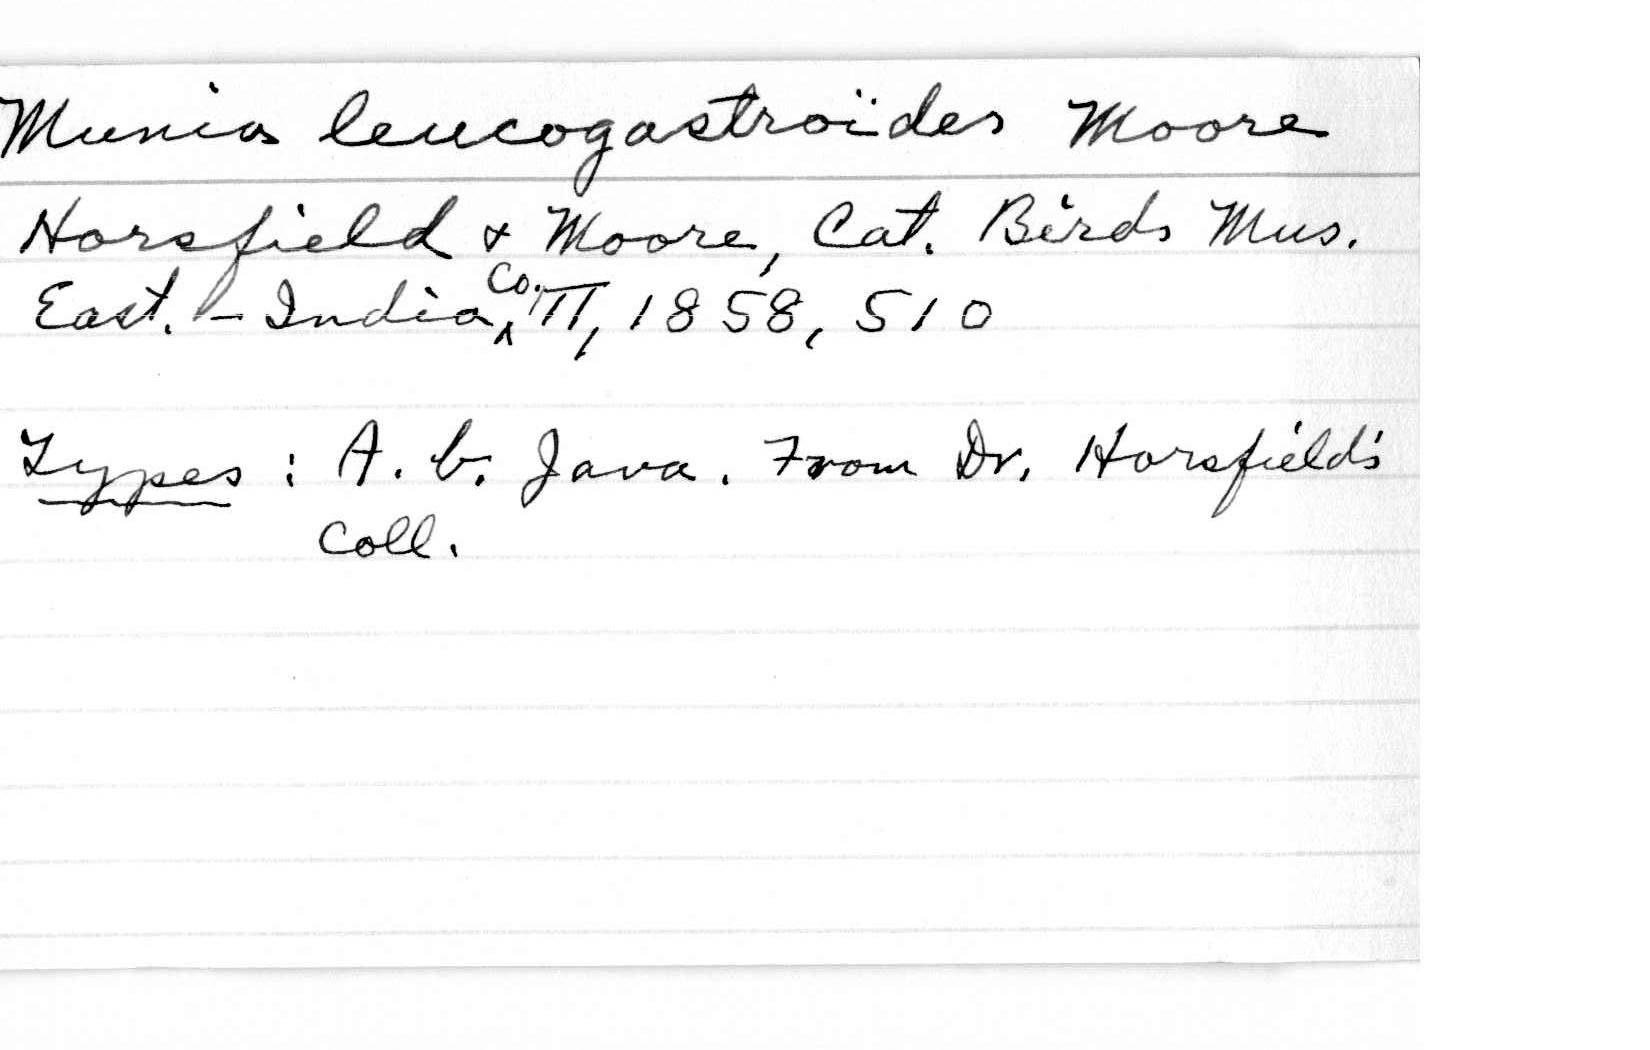 Munia leucogastroïdes Moore
Horsfield & Moore, Cat. Birds Mus.
East.-India Co. II, 1858, 510
Types: A. b. Java. From Dr. Horsfield's
Coll.